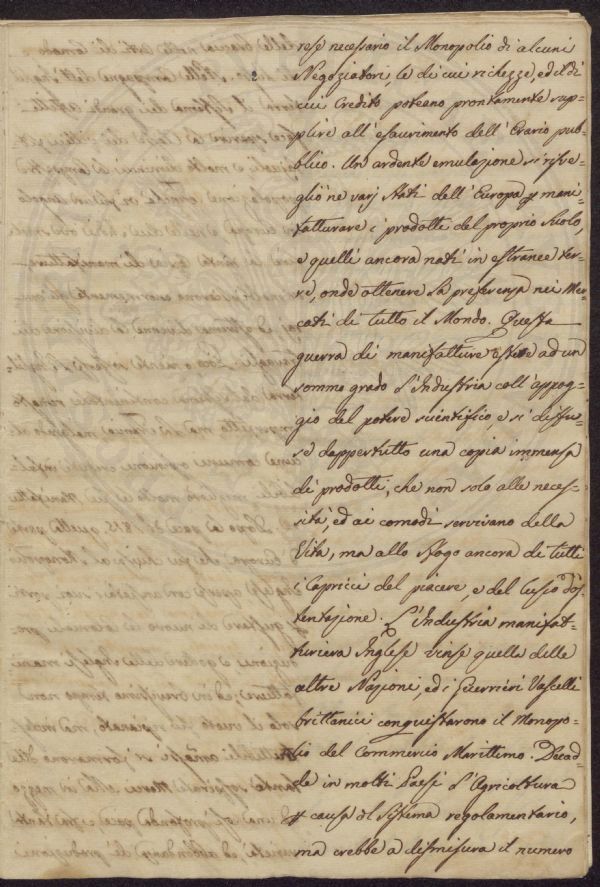 rese necessario il Monopolio di alcuni
Negoziatori, le di cui richezze, ed il di
cui Credito poteano prontamente sup=
plire all' esaurimento dell' Erario pub=
blico. Un ardente emulazione si risve=
gliò ne varj Stati dell' Europa p mani=
fatturare i prodotti del proprio Suolo,
e quelli ancora nati in estranee ter=
re, onde ottenere la preferenza nei Mer=
cati di tutto il Mondo. Questa
guerra di manifatture ad un
sommo grado l'Industria coll' appog=
gio del potere scientifico e si diffu=
se dappertutto una copia immensa
di prodotti, che non solo alle neces=
sità, ed ai comodi servivano della
Vita, ma allo sfogo ancora di tutti
i Capricci del piacere, e del lusso d'os=
tentazione. L'Industria manifat=
turiera Inglese vinse quelle delle
altre Nazioni, ed i Guerrieri Vascelli
brittanici conquistarono il Monopo=
lio del Commercio Marittimo. Decad=
de in molti Paesi l'Agricoltura
p causa del Sistema regolamentario,
ma crebbe a dismisura il numero